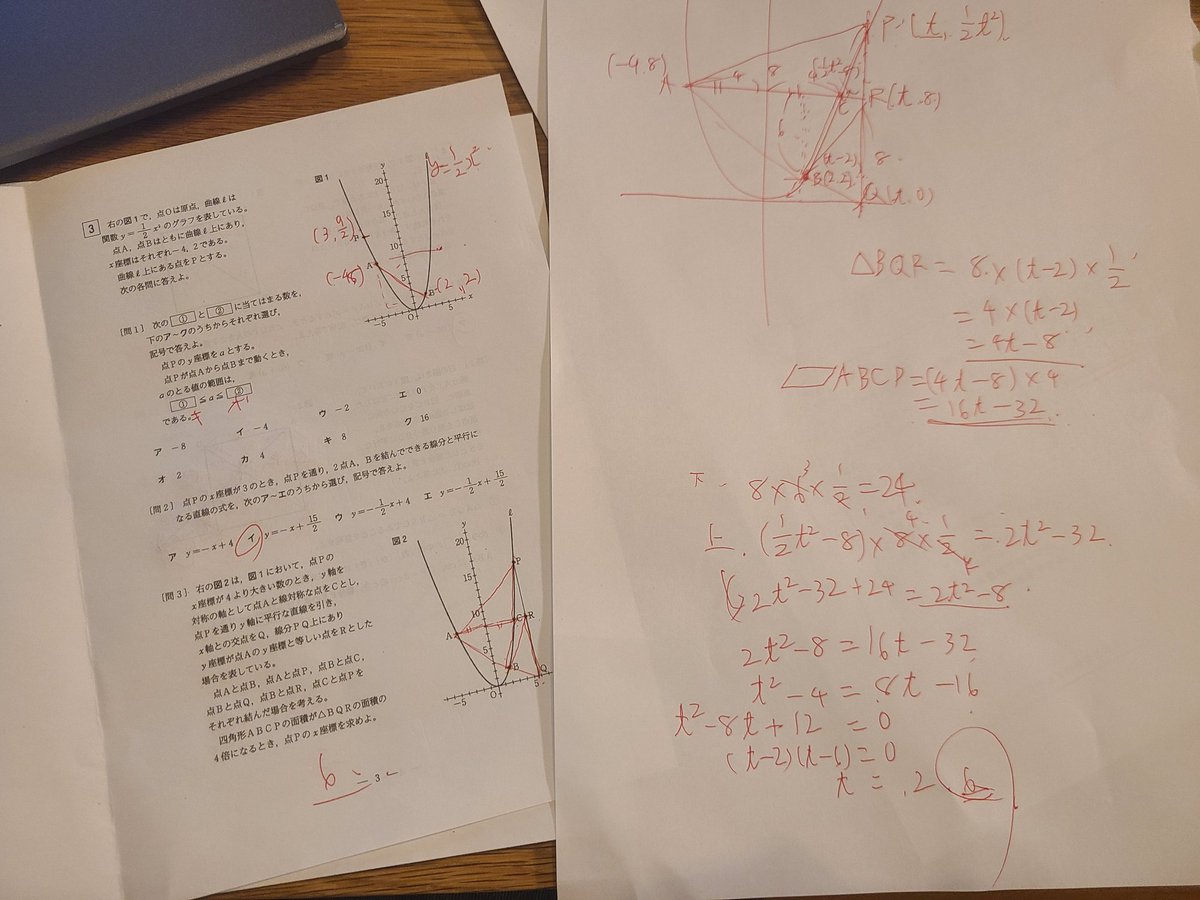 3 右の図1で,点Oは原点,曲線ℓは
関数 y=1/2 x² のグラフを表している。
点A,点Bはともに曲線ℓ上にあり,
x座標はそれぞれ-4,2である。
曲線ℓ上にある点をPとする。
次の各問に答えよ。
〔問1〕 次の ① と ② に当てはまる数を,
下のア~クのうちからそれぞれ選び,
記号で答えよ。
点Pのy座標をaとする。
点Pが点Aから点Bまで動くとき,
aのとる値の範囲は,
① ≦a≦ ②
である。
ア -8 イ -4 ウ -2 エ 0
オ 2 カ 4 キ 8 ク 16
〔問2〕 点Pのx座標が3のとき,点Pを通り,2点A,Bを結んでできる線分と平行に
なる直線の式を,次のア~エのうちから選び,記号で答えよ。
ア y=-x+4 イ y=-x+15/2 ウ y=-1/2 x+4 エ y=-1/2 x+15/2
〔問3〕 右の図2は,図1において,点Pの
x座標が4より大きい数のとき,y軸を
対称の軸として点Aと線対称な点をCとし,
点Pを通りy軸に平行な直線を引き,
x軸との交点をQ,線分PQ上にあり
y座標が点Aのy座標と等しい点をRとした
場合を表している。
点Aと点B,点Aと点P,点Bと点C,
点Bと点Q,点Bと点R,点Cと点Pを
それぞれ結んだ場合を考える。
四角形ABCPの面積が△BQRの面積の
4倍になるとき,点Pのx座標を求めよ。
6
- 3 -
図1
y=1/2 x²
y
ℓ
20
15
10
5
(3, 9/2) P
A
B (2, 2)
-5 O 5 x
キ オ
図2
y
ℓ
20
15
10
5
P
A
C R
B
Q
-5 O 5
P (t, 1/2 t²)
(-4, 8)
A 4 8
C R (t, 8)
6
(t-2) 8
B (2, 2)
Q (t, 0)
△BQR = 8 × (t-2) × 1/2
= 4 × (t-2)
= 4t-8
ABCP = (4t-8) × 4
= 16t-32
下. 8 × 6 × 1/2 = 24
上. (1/2 t²-8) × 8 × 1/2 = 2t²-32
2t²-32+24 = 2t²-8
2t²-8 = 16t-32
t²-4 = 8t-16
t²-8t+12 = 0
(t-2)(t-6) = 0
t = 2 6